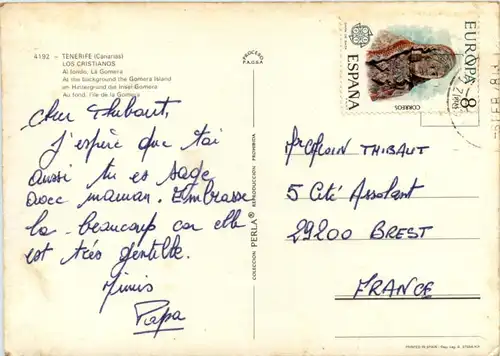 4192 - TENERIFE (Canarias)
LOS CRISTIANOS
Al fondo, La Gomera
At the background the Gomera Island
im Hintergrund die Insel Gomera
Au fond, l'ile de la Gomera
Cher Thibaut,
J'espère que toi
aussi tu es sage
avec maman. Embrasse
la beaucoup car elle
est très gentille.
Papa
PROCERO
COLECCION PERLA® REPRODUCCION PROHIBIDA
EUROPA
8
ESPAÑA
CORREOS
THIBAUT
5 Cité Assolant
29200 BREST
FRANCE